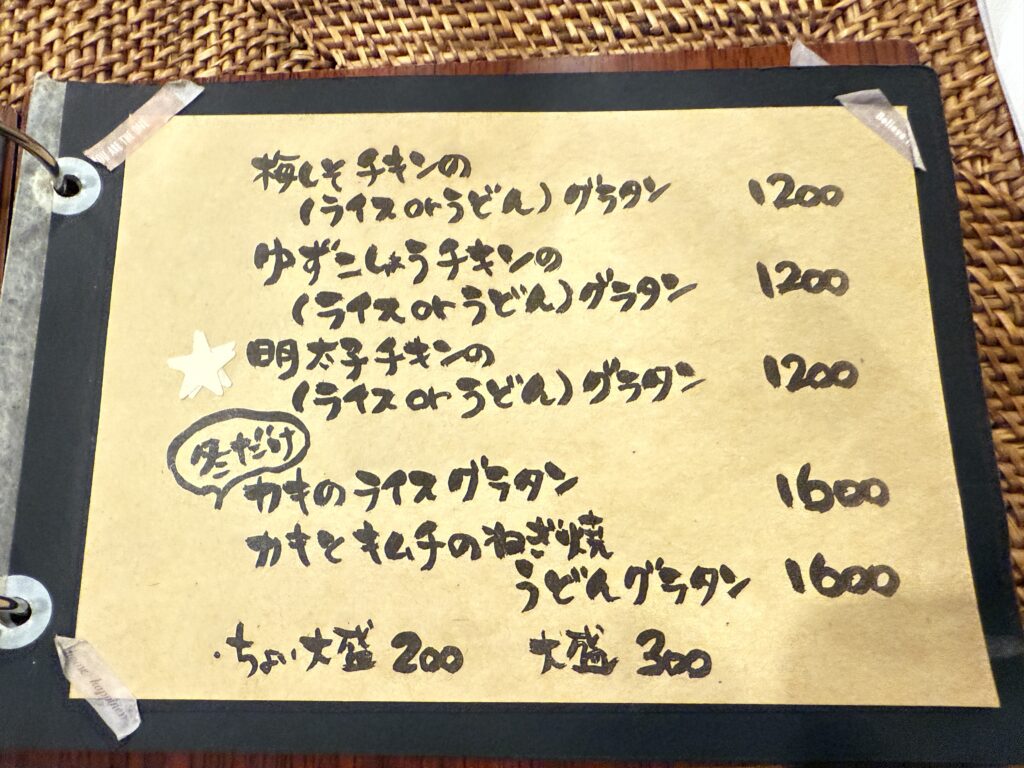 梅しそチキンの
(ライスorうどん)グラタン 1200
ゆずこしょうチキンの
(ライスorうどん)グラタン 1200
明太子チキンの
(ライスorうどん)グラタン 1200
冬だけ
カキのライスグラタン 1600
カキとキムチのねぎ焼
うどんグラタン 1600
・ちょい大盛 200 大盛 300
Believe